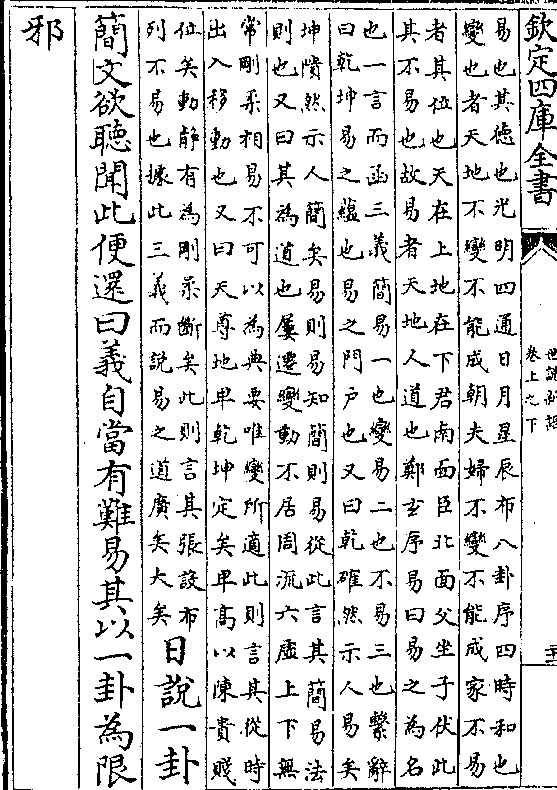 欽定四庫全書
世說新語
卷上之下
易也其徳也光明四通日月星辰布八卦序四時和也
變也者天地不變不能成朝夫婦不變不能成家不易
者其位也天在上地在下君南面臣北面父坐子伏此
其不易也故易者天地人道也鄭玄序易曰易之為名
也一言而函三義簡易一也變易二也不易三也繫辭
曰乾坤易之藴也易之門户也又曰乾確然示人易矣
坤隤然示人簡矣易則易知簡則易從此言其簡易法
則也又曰其為道也屢遷變動不居周流六虛上下無
常剛柔相易不可以為典要唯變所適此則言其從時
出入移動也又曰天尊地卑乾坤定矣卑高以陳貴賤
位矣動静有為剛柔斷矣此則言其張設布
列不易也據此三義而說易之道廣矣大矣
日說一卦
簡文欲聽聞此便還曰義自當有難易其以一卦為限
邪